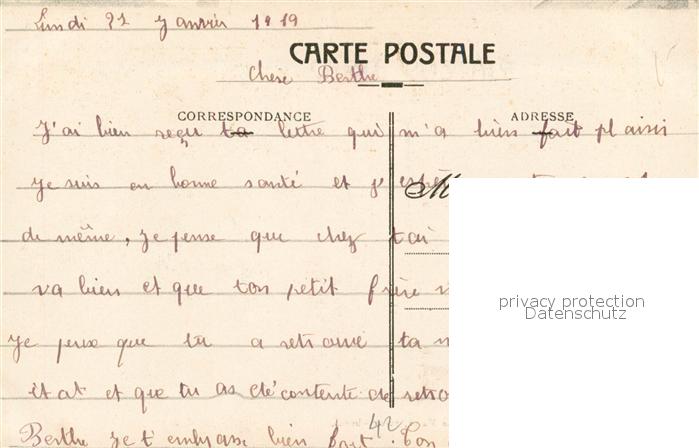 Lundi 21 Janvier 1919
CARTE POSTALE
Chere Berthe
CORRESPONDANCE
ADRESSE
J'ai bien reçu ta lettre qui m'a bien fait plaisir
M
Je suis en bonne santé et j'
de même, je pense que chez toi
va bien et que ton petit frère
Je pense que tu a retrouvé ta
état et que tu as été contente de
Berthe je t'embrasse bien fort. Ton
42
privacy protection
Datenschutz